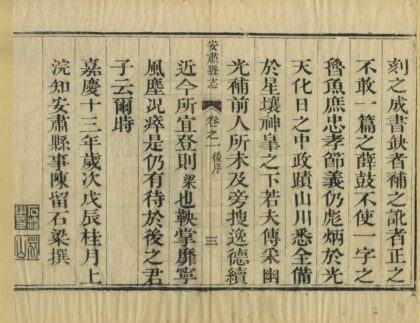 刻之成書缺者補之訛者正之
不敢一篇之薛鼓不使一字之
魯魚庶忠孝節義仍彪炳於光
天化日之中政蹟山川悉全備
於星壤神皐之下若夫傳采幽
光補前人所未及旁搜逸德續
安肅縣志
卷之一
後序
三
近今所宜登則梁也鞅掌靡寧
風塵況瘁是仍有待於後之君
子云爾時
嘉慶十三年歲次戊辰桂月上
浣知安肅縣事陳留石梁撰